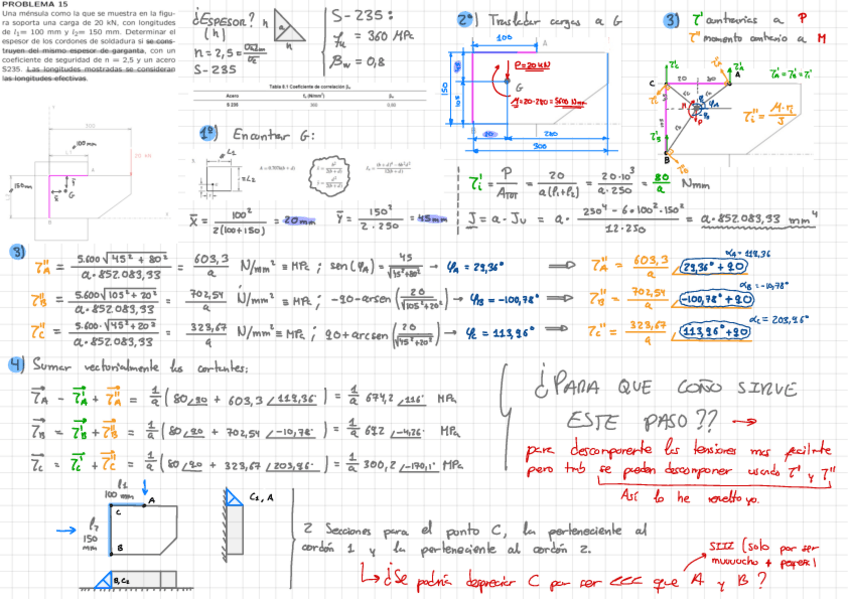 PROBLEMA 15
Una ménsula como la que se muestra en la figu-
ra soporta una carga de 20 kN, con longitudes
de l₁= 100 mm y l₂= 150 mm. Determinar el
espesor de los cordones de soldadura si se cons-
truyen del mismo espesor de garganta, con un
coeficiente de seguridad de n = 2,5 y un acero
S235. Las longitudes mostradas se consideran
las longitudes efectivas.
¿ESPESOR?
(h)
n = 2,5 =
S-235
h
a
h
S-235:
fu = 360 MPa
βw = 0,8
Tabla 6.1 Coeficiente de correlación βw
Acero
S 235
360
0,8
1º) Encontrar G:
L1
L2
x̄ = 100² / 2(100+150) = 20mm
ȳ = 150² / 2·250 = 45mm
300
100mm
20 kN
150mm
G
2º) Trasladar cargas a G
100
A
P=20kN
G
M=20·280=5600 Nmm
150
105
20
280
300
3) τ' contrarias a P
τ'' momento contrario a M
τ'A = τ'B = τ'C
τ''i = M·ri / J
C
A
B
20
τ'i = P / ATOT = 20 / a(l1+l2) = 20·10³ / a·250 = 80 / a Nmm
J = a·Ju = a· 250⁴ - 6·100²·150² / 12·250 = a·852.083,33 mm⁴
3)
τ''A = 5.600√45²+80² / a·852.083,33 = 603,3 / a N/mm² ≡ MPa ; sen(φA) = 45 / √45²+80² → φA = 29,36° ⟹ τ''A = 603,3 / a ∠29,36°+90 αA=119,36
τ''B = 5.600√105²+20² / a·852.083,33 = 702,54 / a N/mm² ≡ MPa ; -90-arcsen(20 / √105²+20²) → φB = -100,78° ⟹ τ''B = 702,54 / a ∠-100,78°+90 αB=-10,78°
τ''C = 5.600·√45²+20² / a·852.083,33 = 323,67 / a N/mm² ≡ MPa ; 90+arcsen(20 / √45²+20²) → φC = 113,96° ⟹ τ''C = 323,67 / a ∠113,96°+90 αC=203,96°
4) Sumar vectorialmente los cortantes:
τA = τ'A + τ''A = 1/a (80∠90 + 603,3∠119,36°) = 1/a 674,2∠116° MPa
τB = τ'B + τ''B = 1/a (80∠90 + 702,54∠-10,78°) = 1/a 692∠-4,26° MPa
τC = τ'C + τ''C = 1/a (80∠90 + 323,67∠203,96°) = 1/a 300,2∠-170,1° MPa
¿PARA QUE COÑO SIRVE
ESTE PASO?? →
para descomponerte las tensiones mas facilmte
pero tmb se pueden descomponer usando τ' y τ''
Así lo he resuelto yo.
l1
100 mm
A
C
l2
150
mm
B
B, C2
C1, A
2 Secciones para el punto C, la perteneciente al
cordón 1 y la perteneciente al cordón 2.
SIII (solo por ser
muuucho + peque)
↳ ¿Se podría despreciar C por ser <<< que A y B?